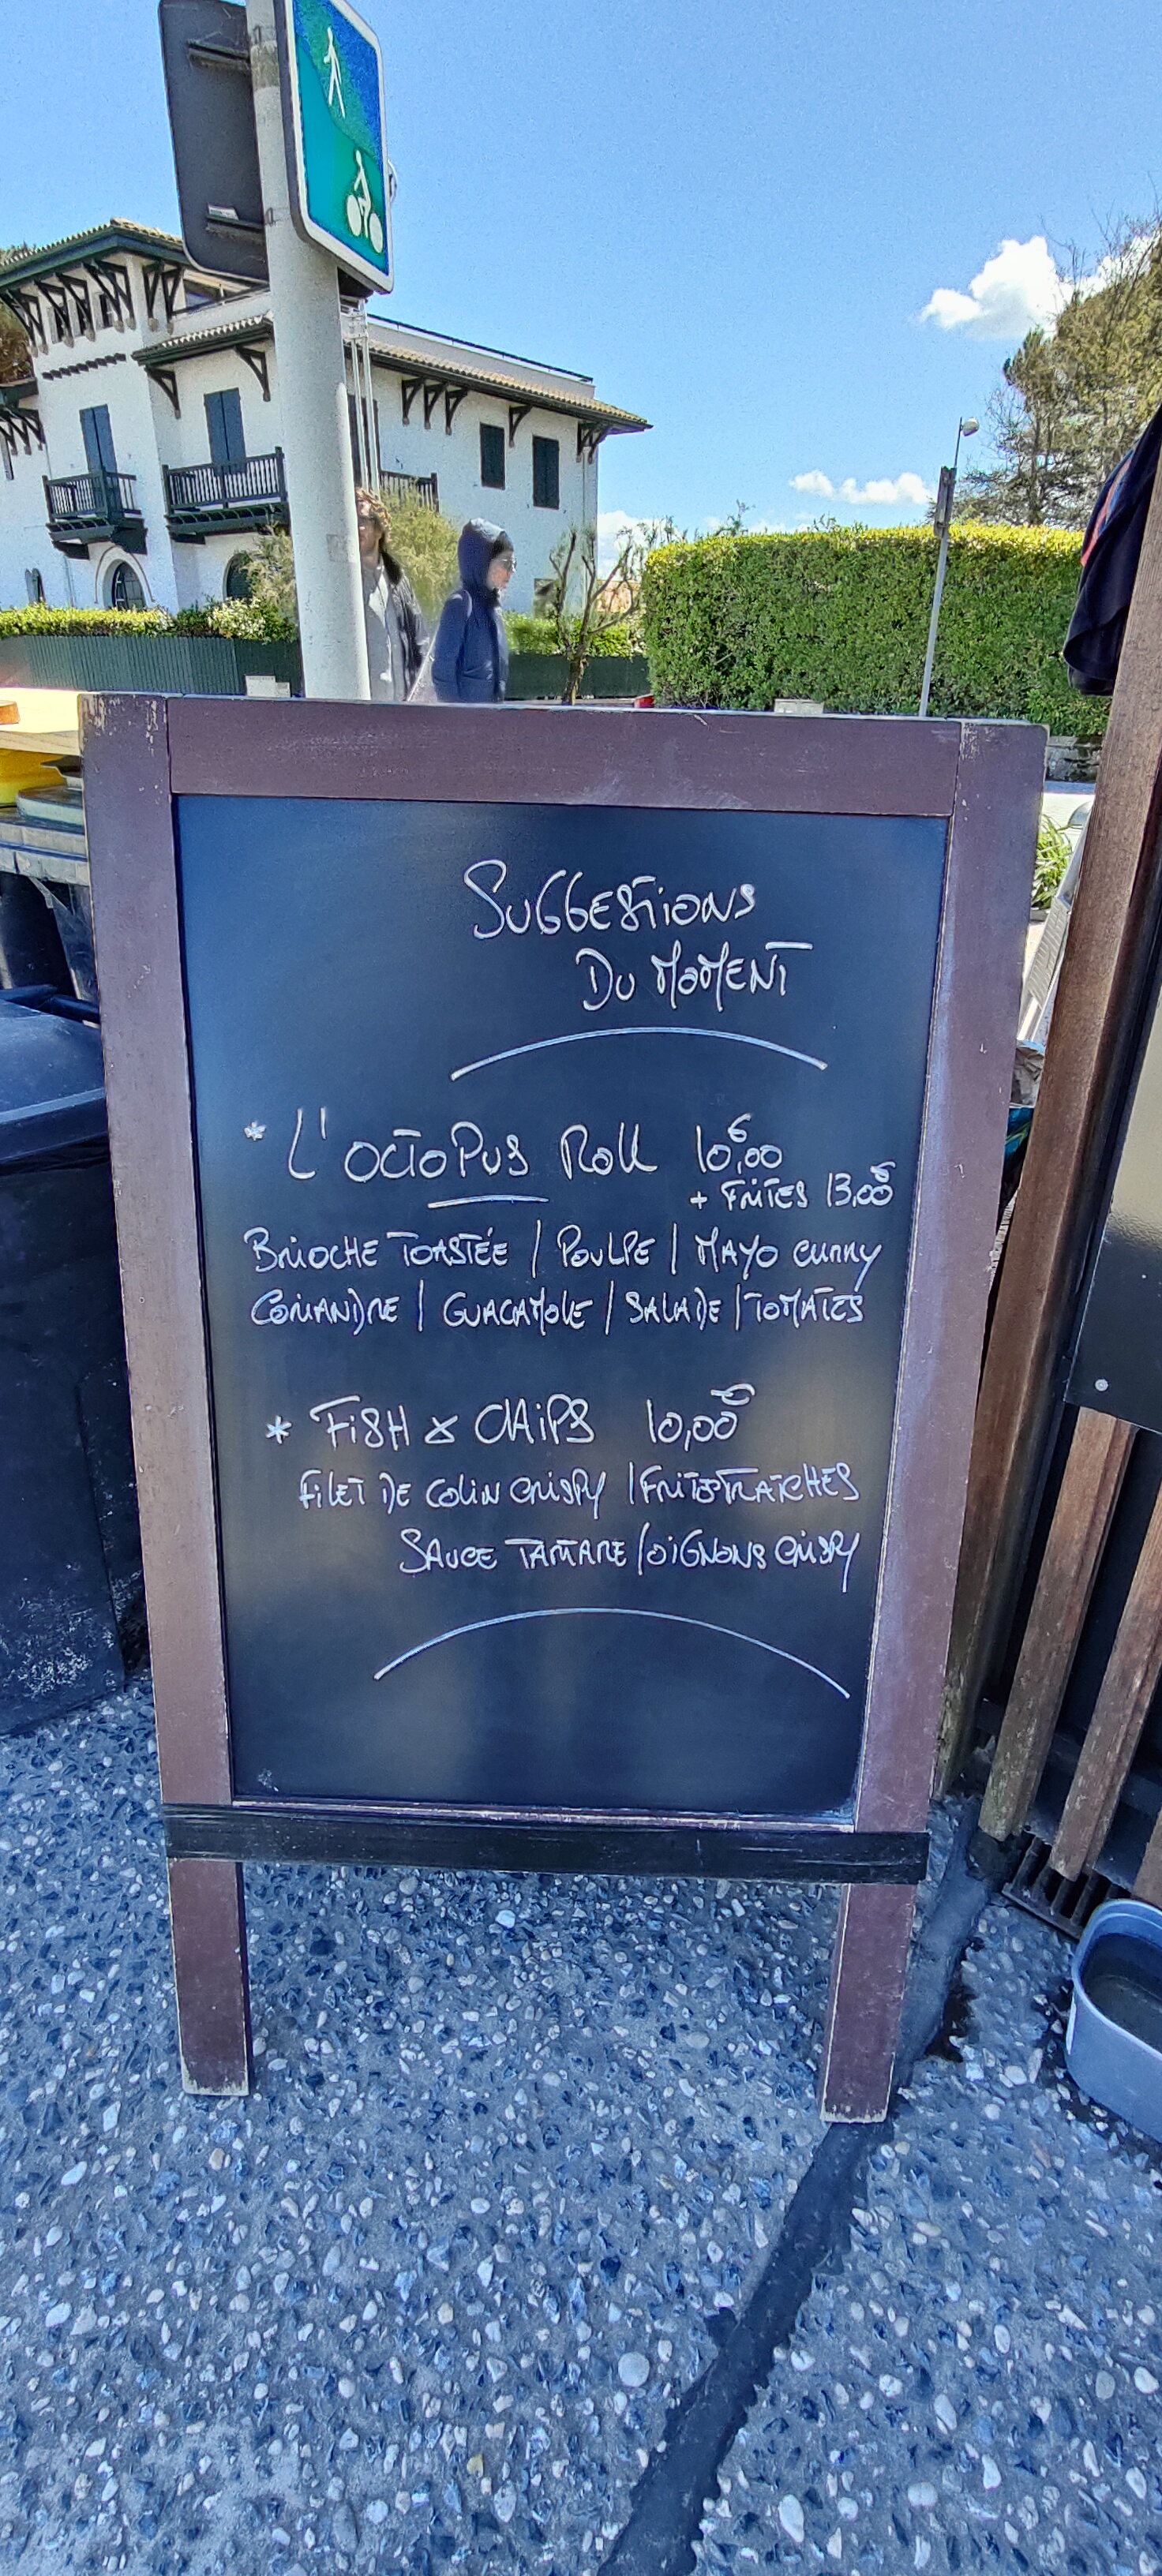 SUGGESTIONS
DU MOMENT
* L'OCTOPUS ROLL 10,00€
+ FRITES 13,00€
BRIOCHE TOASTÉE / POULPE / MAYO CURRY
CORIANDRE / GUACAMOLE / SALADE / TOMATES
* FISH & CHIPS 10,00€
FILET DE COLIN CRISPY / FRITES FRAÎCHES
SAUCE TARTARE / OIGNONS CRISPY